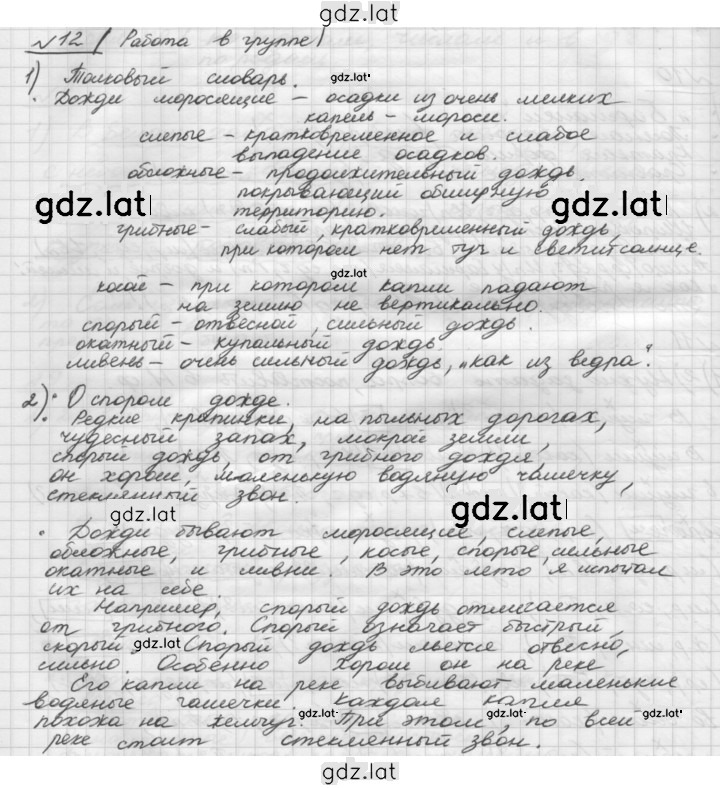 gdz.lat
№12 (Работа в группе)
1) Толковый словарь. gdz.lat
· Дожди моросящие – осадки из очень мелких
капель – мороси.
слепые – кратковременное и слабое
выпадение осадков.
обложные – продолжительный дождь,
покрывающий обширную
gdz.lat
gdz.lat
территорию.
грибные – слабый, кратковременный дождь,
при котором нет туч и светит солнце.
gdz.lat
косой – при котором капли падают
на землю не вертикально.
спорый – отвесной, сильный дождь.
окатный – купальный дождь.
ливень – очень сильный дождь, „как из ведра".
2) · О спором дожде.
· Редкие крапинки, на пыльных дорогах,
чудесный запах, мокрой земли,
спорый дождь от грибного дождя,
он хорош, маленькую водяную чашечку,
стеклянный звон.
gdz.lat
gdz.lat
· Дожди бывают моросящие, слепые,
обложные, грибные, косые, спорые, сильные
окатные и ливни. В это лето я испытал
их на себе.
Например, спорый дождь отличается
от грибного. Спорый означает быстрый,
скорый gdz.lat Спорый дождь льется отвесно,
сильно. Особенно хорош он на реке
Его капли на реке выбивают маленькие
водяные чашечки. Каждая капля
похожа на жемчуг. gdz.lat При этом gdz.lat, по всей gdz.lat
реке стоит стеклянный звон.
gdz.lat